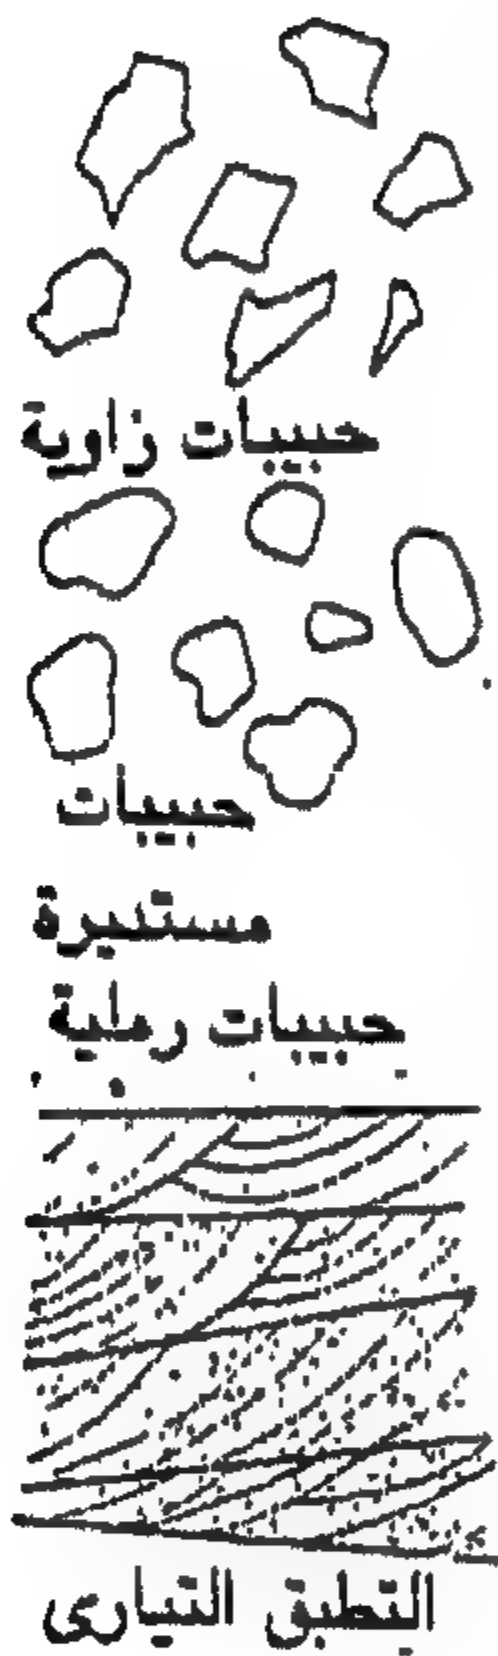 حبيبات زاوية
حبيبات
مستديرة
حبيبات رملية
التطبق التيارى